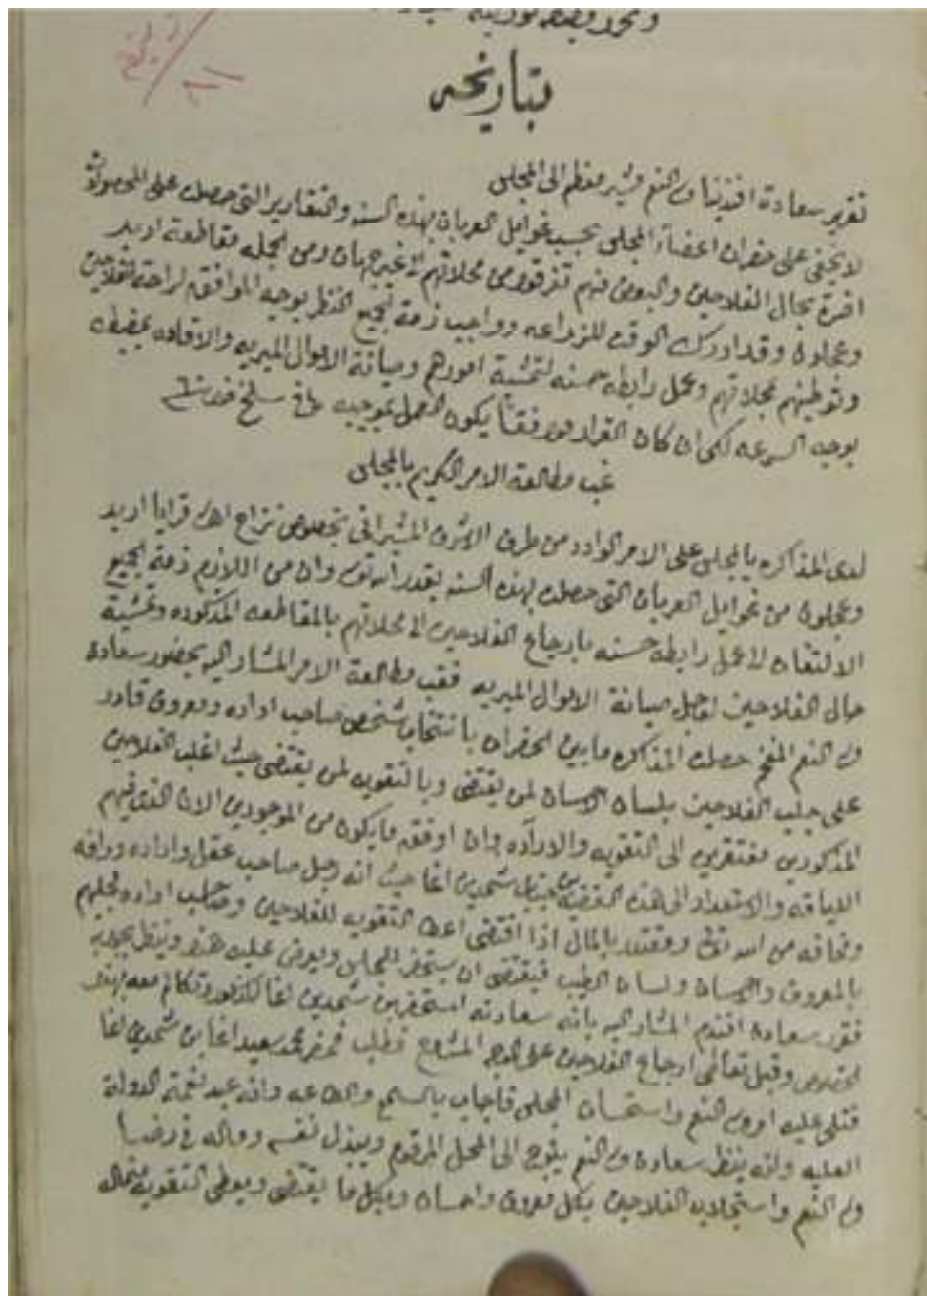 وتحرر
بتاريخه
تقرير سعادة افندينا ولي النعم مشير معظم الى المجلس
لا يخفى على حضرات اعضاء المجلس بحسب غوايل العربان بهذه السنه والتقارير التي حصلت على المحصولات
اضرة بحال الفلاحين والبعض منهم تفرقوا من محلاتهم الى غير جهات ومن الجمله مقاطعة اربد
وعجلون وقد ادرك الوقت للمزراعه وواجب ذمة الجميع النظر بوجه الموافق لراحة الفلاحين
وتوطينهم بمحلاتهم وعمل رابطه حسنه لتمشية امورهم وصيانة الاموال الميريه والافاده بمضبطه
بوجه السرعه لكي ان كان القرار موافقاً يكون العمل بموجبه سلخ
غب مطالعة الامر الكريم بالمجلس
لدى المذاكره بالمجلس على الامر الوارد من طرف الاشرف المشيراني بخصوص نزاح اهالي قرايا اربد
وعجلون من غوايل العربان التي حصلت بهذه السنه بقدر الله تعالى وان من اللازم ذمة الجميع
الالتفات الى عمل رابطه حسنه بارجاع الفلاحين الى محلاتهم بالمقاطعه المذكوره وتمشية
حال الفلاحين لاجل صيانة الاموال الميريه فغب مطالعة الامر المشار اليه بحضور سعادة
ولي النعم المفخم حصلت المذاكره ما بين الحضرات بانتخاب شخص صاحب اداره ومعروف قادر
على جلب الفلاحين بلسان الاحسان لمن يقتضي وبالتقويه لمن يقتضي حيث اغلب الفلاحين
المذكورين مفتقرين الى التقويه والاداره وان اوفق ما يكون من الموجودين الان الذي فيهم
اللياقه والاستعداد الى هذه القضية شمدين اغا حيث انه رجل صاحب عقل واداره ورافه
ومخافه من الله تعالى ومقتدر بالمال اذا اقتضى اعطا التقويه للفلاحين وصاحب اداره تجلبهم
بالمعروف والاحسان ولسان الطيب فيقتضي ان يستحضر للمجلس ويعرض عليه هذه وينظر بجوابه
فقرر سعادة افندم المشار اليه بانه سعادته استحضر شمدين اغا المذكور وتكالم معه بهذا
الخصوص وقبل تعاطي ارجاع الفلاحين على الوجه المشروح فطلب فحضر محمد سعيد اغا بن شمدين اغا
فتلى عليه امر ولي النعم واستحسان المجلس فاجاب بالسمع والطاعه وانه عبد نعمة الدولة
العليه وانه بنظر سعادة ولي النعم يتوجه الى المحل المرقوم ويبذل نفسه وماله في رضا
ولي النعم واستجلاب الفلاحين بكل معروف واحسان وبكل ما يقتضي ويعطي التقويه بحال